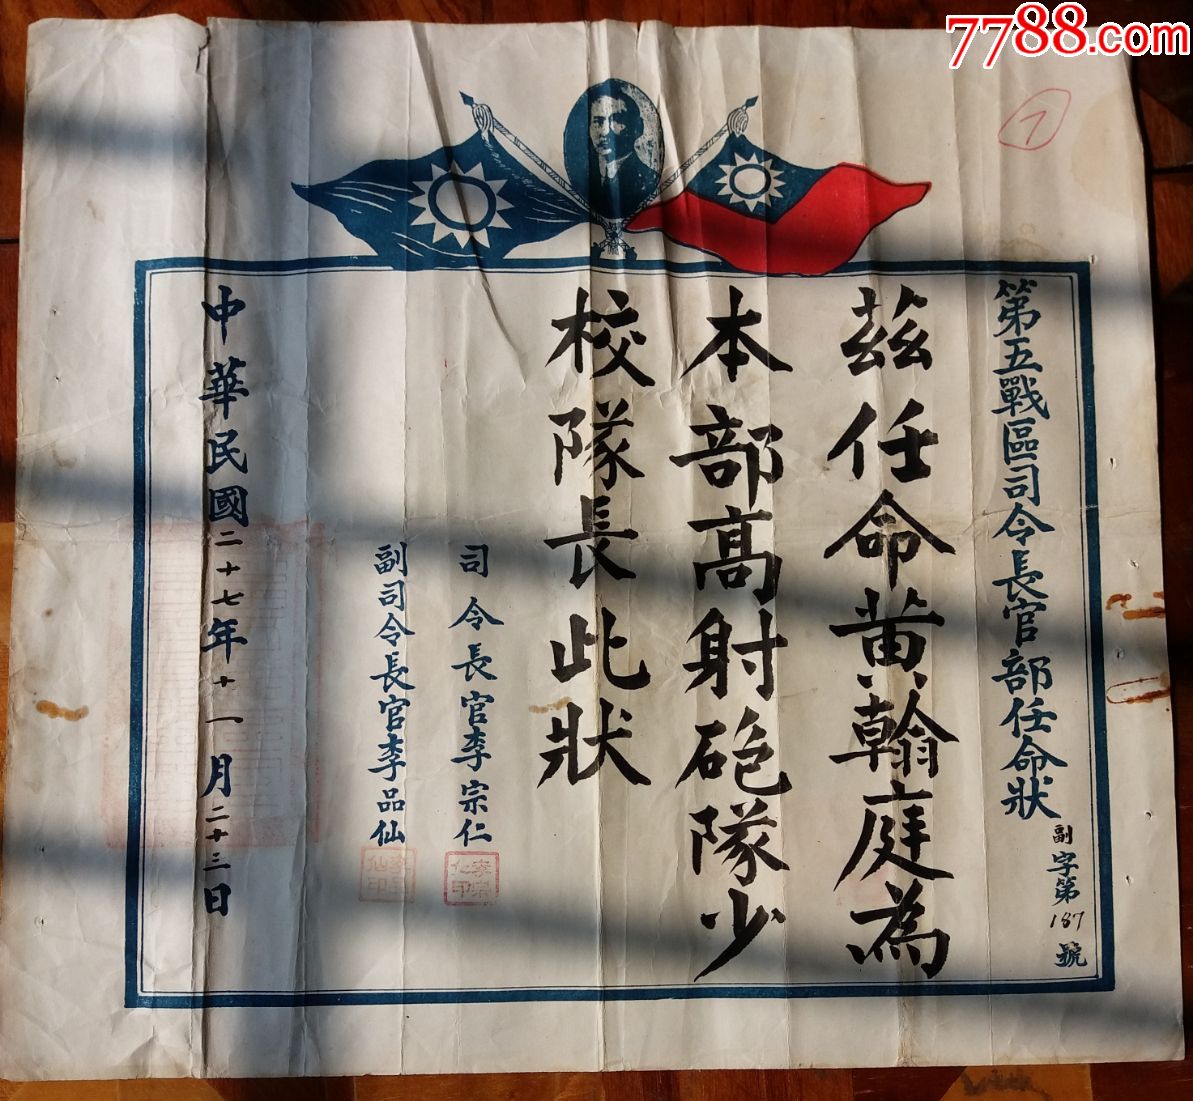 7788.com
7
第五戰區司令長官部任命狀
副字第187號
茲任命黄翰庭為
本部高射砲隊少
校隊長此狀
司令長官李宗仁
副司令長官李品仙
中華民國二十七年十一月二十三日